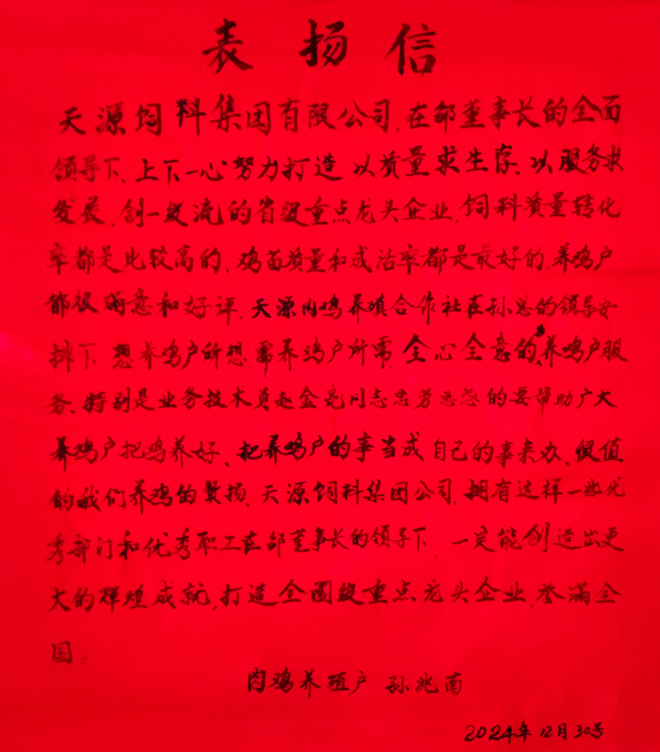 表扬信
天源饲料集团有限公司,在邵董事长的全面
领导下、上下一心努力打造以质量求生存、以服务求
发展、创一级流的省级重点龙头企业,饲料质量转化
率都是比较高的、鸡苗质量和成活率都是最好的、养鸡户
都很满意和好评、天源肉鸡养殖合作社在孙总的领导安
排下、想养鸡户所想、需养鸡户所需、全心全意的为养鸡户服
务、特别是业务技术员赵金亮同志任劳任怨的要帮助广大
养鸡户把鸡养好、把养鸡户的事当成自己的事来办、很值
的我们养鸡的赞扬、天源饲料集团公司、拥有这样一些优
秀部门和优秀职工在邵董事长的领导下、一定能创造出更
大的辉煌成就,打造全国级重点龙头企业、誉满全
国。
肉鸡养殖户 孙兆南
2024年12月30号